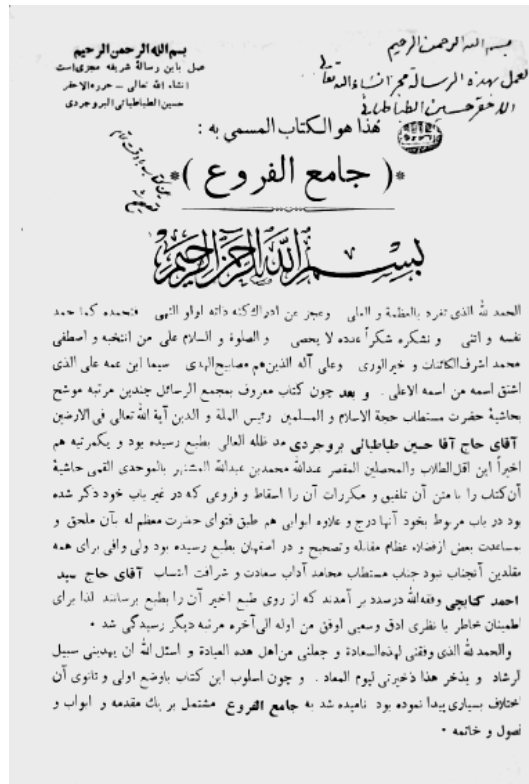 بسم الله الرحمن الرحیم
عمل باین رسالهٔ شریفه مجزی است
انشاء الله تعالی - حرره الاحقر
حسین الطباطبائی البروجردی
بسم الله الرحمن الرحیم
العمل بهذه الرسالة مجز انشاء الله تعالی
الاحقر حسین الطباطبائی
هذا هو الکتاب المسمی به :
*( جامع الفروع )*
بسم الله الرحمن الرحیم
الحمد لله الذی تفرد بالعظمة و العلی وعجز عن ادراک کنه ذاته اولو النهی فنحمده کما حمد
نفسه و اثنی و نشکره شکراً عدده لا یحصی و الصلوة و السلام علی من انتخبه و اصطفی
محمد اشرف الکائنات و خیر الوری وعلی آله الذین هم مصابیح الهدی سیما ابن عمه علی الذی
اشتق اسمه من اسمه الاعلی . و بعد چون کتاب معروف بمجمع الرسائل چندین مرتبه موشح
بحاشیهٔ حضرت مستطاب حجة الاسلام و المسلمین رئیس الملة و الدین آیة الله تعالی فی الارضین
آقای حاج آقا حسین طباطبائی بروجردی مد ظله العالی بطبع رسیده بود و یکمرتبه هم
اخیراً این اقل الطلاب والمحصلین المقصر عبدالله محمدبن عبدالله المشتهر بالموحدی القمی حاشیهٔ
آن کتاب را با متن آن تلفیق و مکررات آن را اسقاط و فروعی که در غیر باب خود ذکر شده
بود در باب مربوط بخود آنها درج و علاوه ابوابی هم طبق فتوای حضرت معظم له بآن ملحق و
بمساعدت بعض از فضلاء عظام مقابله و تصحیح و در اصفهان بطبع رسیده بود ولی وافی برای همه
مقلدین آنجناب نبود جناب مستطاب محامد آداب سعادت و شرافت انتساب آقای حاج سید
احمد کتابچی وفقه الله درصدد بر آمدند که از روی طبع اخیر آن را بطبع برسانند لذا برای
اطمینان خاطر با نظری ادق وسعیی اوفق من اوله الی آخره مرتبه دیگر رسیدگی شد .
والحمد لله الذی وفقنی لهذه السعادة و جعلنی من اهل هذه العبادة و اسئل الله ان یهدینی سبیل
الرشاد و یذخر هذا ذخیرتی لیوم المعاد . و چون اسلوب این کتاب باوضع اولی و ثانوی آن
اختلاف بسیاری پیدا نموده بود نامیده شد به جامع الفروع مشتمل بر یک مقدمه و ابواب و
فصول و خاتمه .